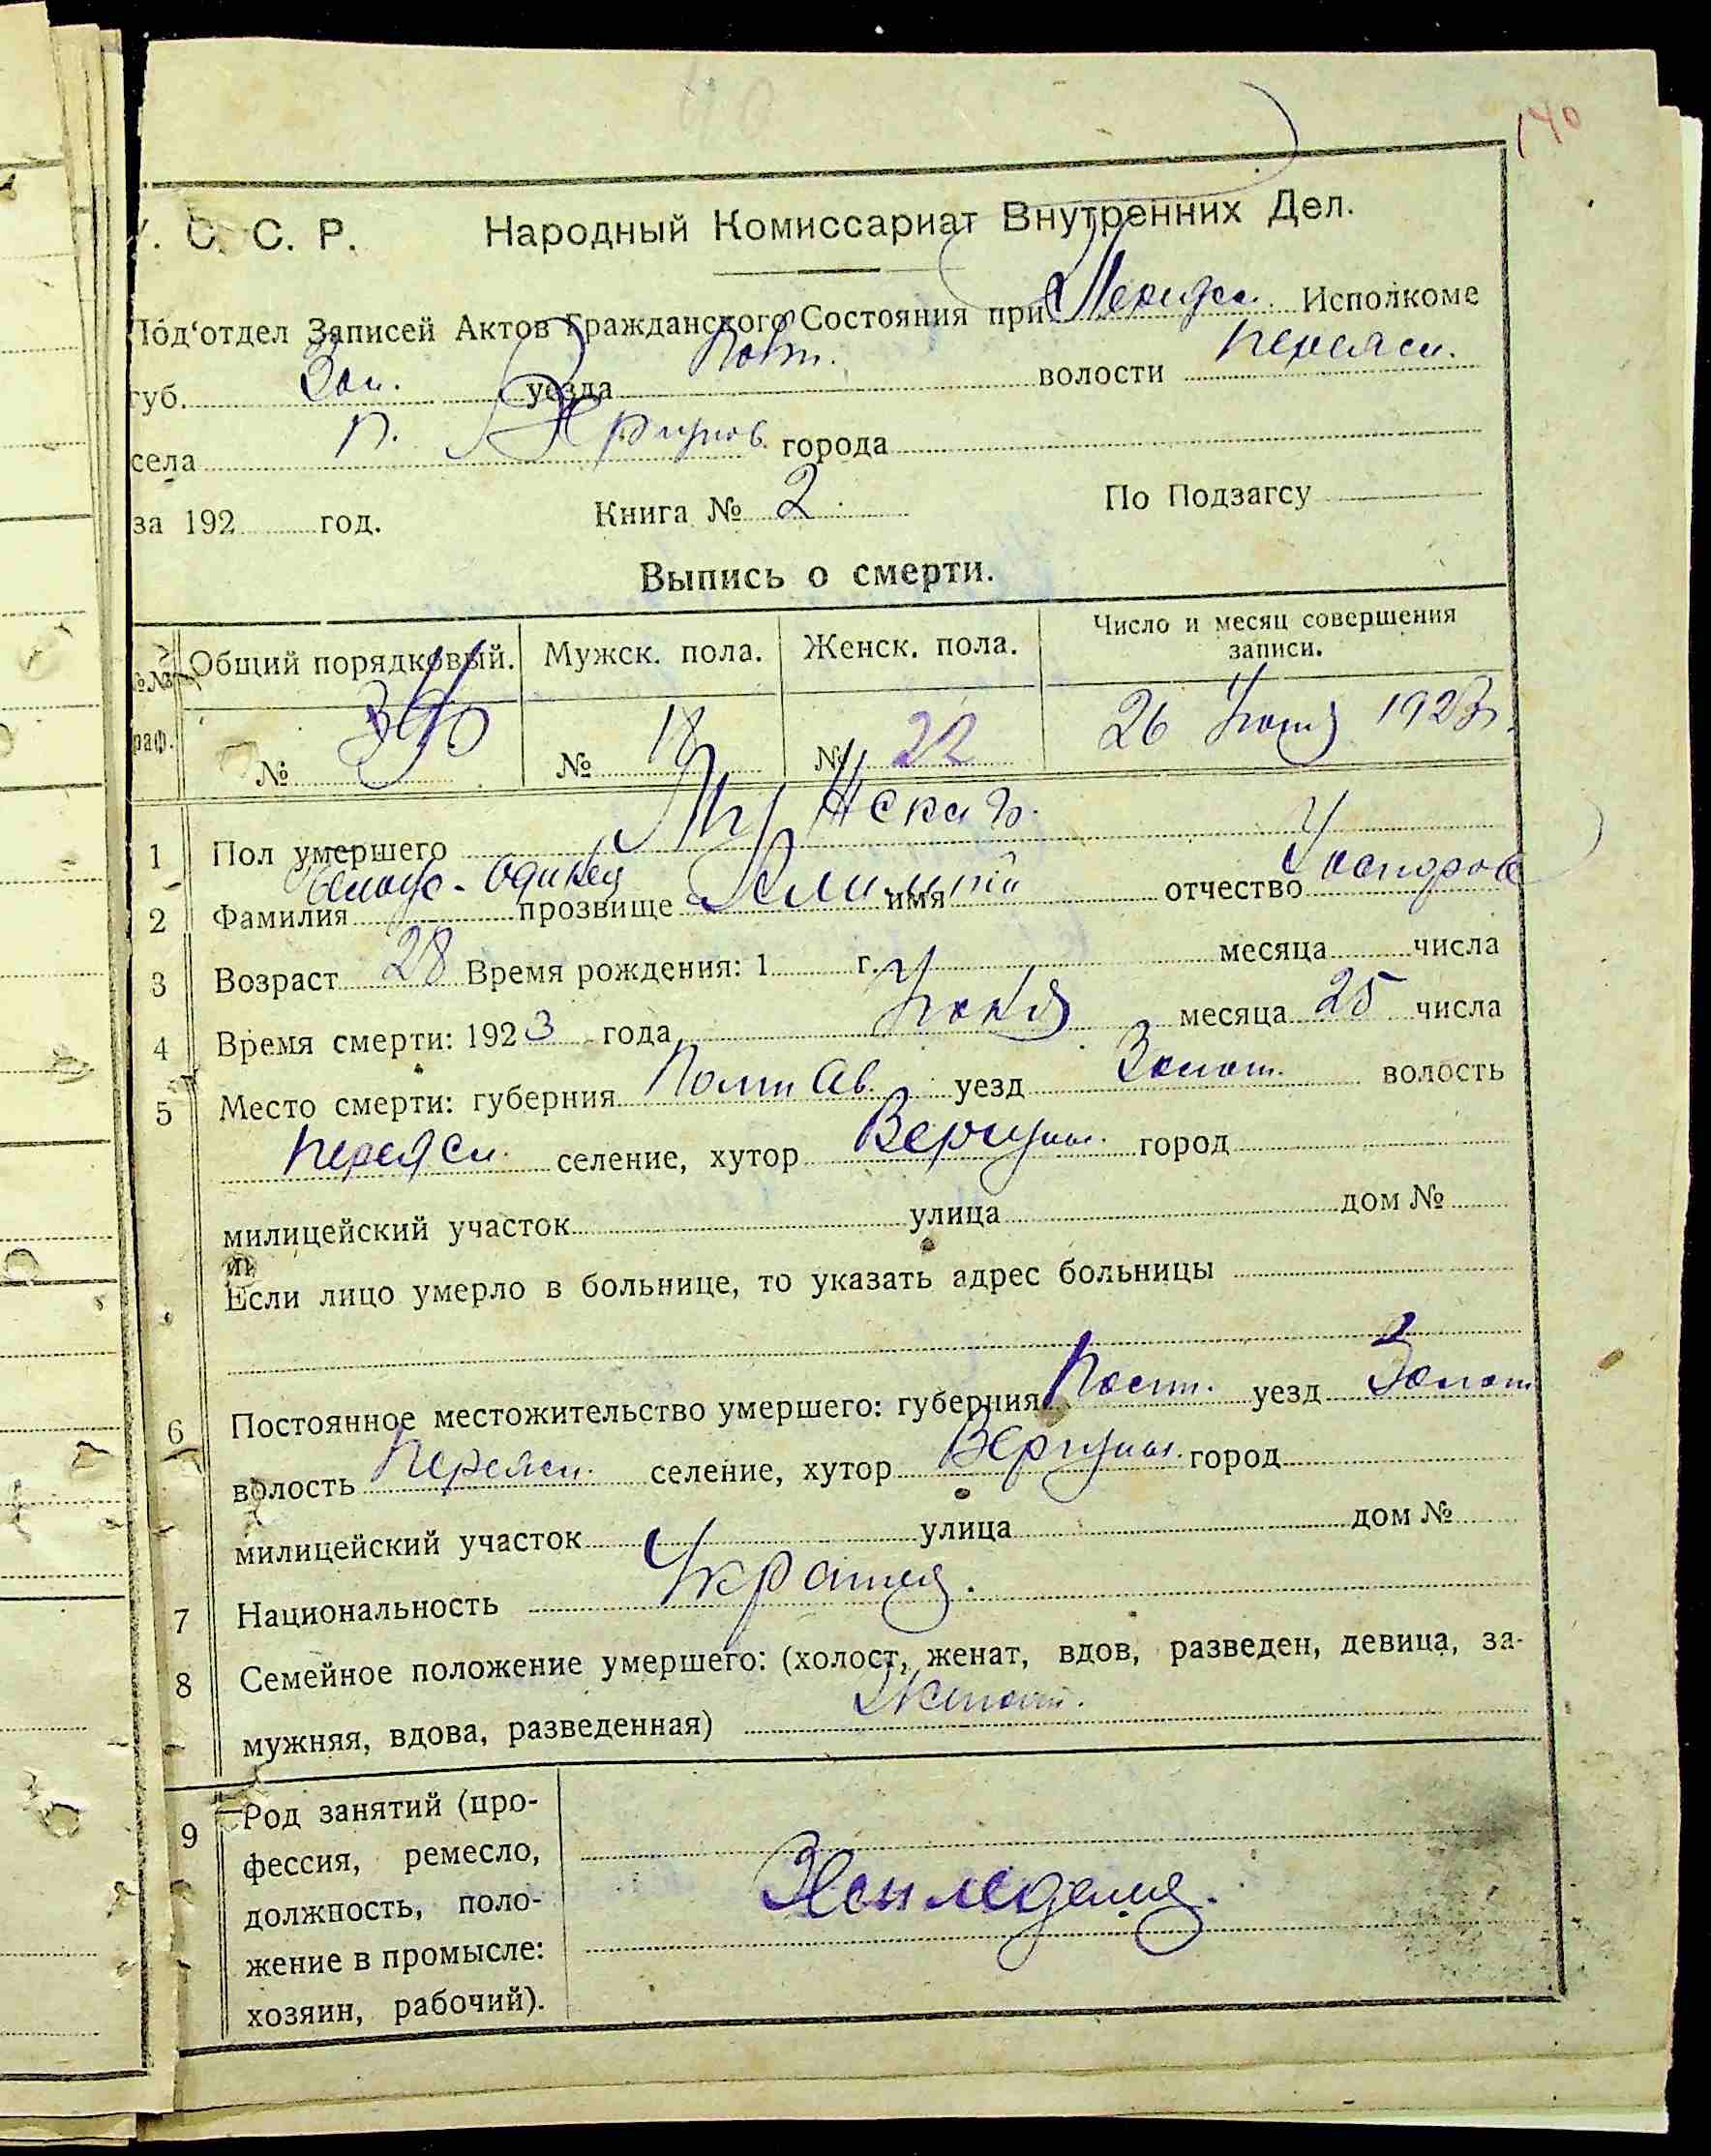 140
У. С. С. Р. Народный Комиссариат Внутренних Дел.
Под‘отдел Записей Актов Гражданского Состояния при Исполкоме
губ. Зол. уезда Полт. волости Переясл.
села города
за 192 год. Книга № 2 По Подзагсу
Выпись о смерти.
№№ граф. Общий порядковый. Мужск. пола. Женск. пола. Число и месяц совершения записи.
№ № 18 № 22 26 1923
1 Пол умершего Мужская
2 Фамилия прозвище имя отчество
3 Возраст 28 Время рождения: 1 г. месяца числа
4 Время смерти: 1923 года месяца 25 числа
5 Место смерти: губерния Полтав. уезд Золот. волость
Переясл. селение, хутор Вергуны. город
милицейский участок улица дом №
Если лицо умерло в больнице, то указать адрес больницы
6 Постоянное местожительство умершего: губерния Полт. уезд Золот
волость Переясл. селение, хутор Вергуны. город
милицейский участок улица дом №
7 Национальность
8 Семейное положение умершего: (холост, женат, вдов, разведен, девица, за-
мужняя, вдова, разведенная) Женат.
9 Род занятий (про-
фессия, ремесло,
должность, поло-
жение в промысле:
хозяин, рабочий).